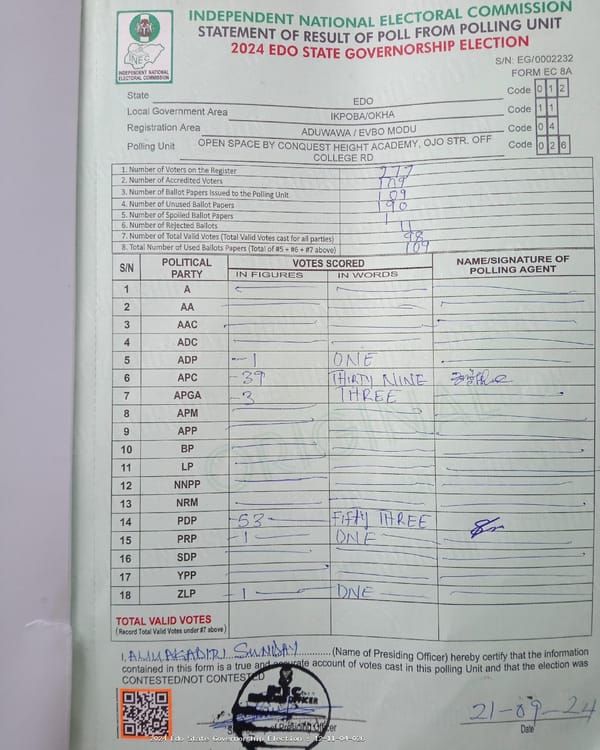 INDEPENDENT NATIONAL ELECTORAL COMMISSION
STATEMENT OF RESULT OF POLL FROM POLLING UNIT
2024 EDO STATE GOVERNORSHIP ELECTION
INEC
INDEPENDENT NATIONAL
ELECTORAL COMMISSION
S/N: EG/0002232
FORM EC 8A
State EDO Code 0 1 2
Local Government Area IKPOBA/OKHA Code 1 1
Registration Area ADUWAWA / EVBO MODU Code 0 4
Polling Unit OPEN SPACE BY CONQUEST HEIGHT ACADEMY, OJO STR. OFF COLLEGE RD Code 0 2 6
1. Number of Voters on the Register 277
2. Number of Accredited Voters 109
3. Number of Ballot Papers Issued to the Polling Unit
4. Number of Unused Ballot Papers
5. Number of Spoiled Ballot Papers
6. Number of Rejected Ballots 11
7. Number of Total Valid Votes (Total Valid Votes cast for all parties) 98
8. Total Number of Used Ballots Papers (Total of #5 + #6 + #7 above) 109
S/N POLITICAL PARTY VOTES SCORED NAME/SIGNATURE OF POLLING AGENT
IN FIGURES IN WORDS
1 A
2 AA
3 AAC
4 ADC
5 ADP 1 ONE
6 APC 39 THIRTY NINE
7 APGA 3 THREE
8 APM
9 APP
10 BP
11 LP
12 NNPP
13 NRM
14 PDP 53 FIFTY THREE
15 PRP 1 ONE
16 SDP
17 YPP
18 ZLP 1 ONE
ORIGINAL
TOTAL VALID VOTES
(Record Total Valid Votes under #7 above)
I, SUNDAY (Name of Presiding Officer) hereby certify that the information
contained in this form is a true and accurate account of votes cast in this polling Unit and that the election was
CONTESTED/NOT CONTESTED
21-09-24
Date
2024 Edo State Governorship Election